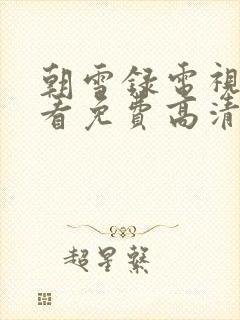 朝雪録電視
看免費高清
超星繫